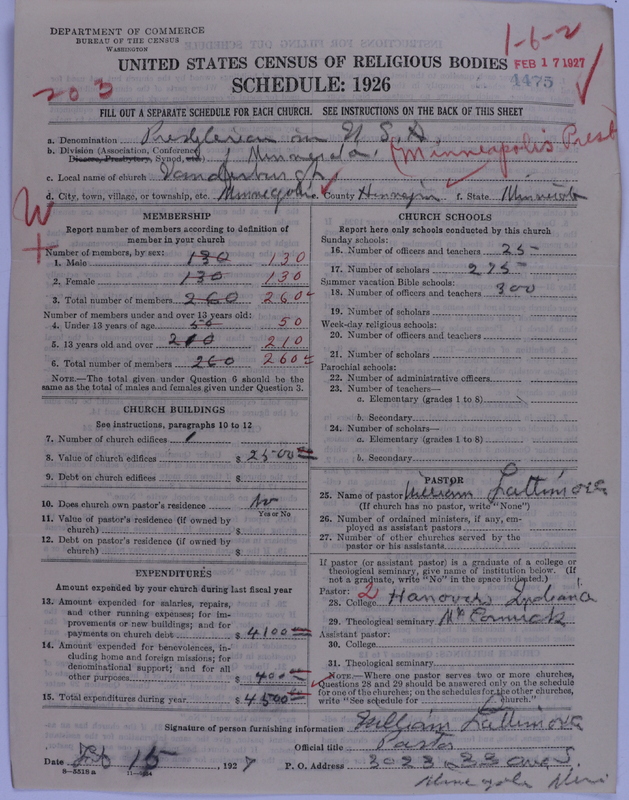 DEPARTMENT OF COMMERCE
BUREAU OF THE CENSUS
WASHINGTON
1-6-2
UNITED STATES CENSUS OF RELIGIOUS BODIES
FEB 17 1927
4475
203
SCHEDULE: 1926
FILL OUT A SEPARATE SCHEDULE FOR EACH CHURCH. SEE INSTRUCTIONS ON THE BACK OF THIS SHEET
a. Denomination Presbyterian in U S A
b. Division (Association, Conference, Diocese, Presbytery, Synod, etc.) Minnesota. (Minneapolis Presb
c. Local name of church Vanderburgh
d. City, town, village, or township, etc. Minneapolis e. County Hennepin f. State Minnesota
W
+
MEMBERSHIP
Report number of members according to definition of
member in your church
Number of members, by sex:
1. Male 130 130
2. Female 130 130
3. Total number of members 260 260
Number of members under and over 13 years old:
4. Under 13 years of age 50 50
5. 13 years old and over 210 210
6. Total number of members 260 260
NOTE.—The total given under Question 6 should be the
same as the total of males and females given under Question 3.
CHURCH BUILDINGS
See instructions, paragraphs 10 to 12
7. Number of church edifices 1
8. Value of church edifices $ 2500
9. Debt on church edifices $
10. Does church own pastor's residence No
Yes or No
11. Value of pastor's residence (if owned by
church) $
12. Debt on pastor's residence (if owned by
church) $
EXPENDITURES
Amount expended by your church during last fiscal year
13. Amount expended for salaries, repairs,
and other running expenses; for im-
provements or new buildings; and for
payments on church debt $ 4100
14. Amount expended for benevolences, in-
cluding home and foreign missions; for
denominational support; and for all
other purposes $ 400
15. Total expenditures during year $ 4500
CHURCH SCHOOLS
Report here only schools conducted by this church
Sunday schools:
16. Number of officers and teachers 25
17. Number of scholars 275
Summer vacation Bible schools:
18. Number of officers and teachers 300
19. Number of scholars
Week-day religious schools:
20. Number of officers and teachers
21. Number of scholars
Parochial schools:
22. Number of administrative officers
23. Number of teachers—
a. Elementary (grades 1 to 8)
b. Secondary
24. Number of scholars—
a. Elementary (grades 1 to 8)
b. Secondary
PASTOR
25. Name of pastor William Lattimore
(If church has no pastor, write "None")
26. Number of ordained ministers, if any, em-
ployed as assistant pastors
27. Number of other churches served by the
pastor or his assistants
If pastor (or assistant pastor) is a graduate of a college or
theological seminary, give name of institution below. (If
not a graduate, write "No" in the space indicated.)
Pastor: 2
28. College Hanover, Indiana
29. Theological seminary McCormick
Assistant pastor:
30. College
31. Theological seminary
NOTE.—Where one pastor serves two or more churches,
Questions 28 and 29 should be answered only on the schedule
for one of the churches; on the schedules for the other churches,
write "See schedule for Church."
Signature of person furnishing information William Lattimore
Official title Pastor
Date Feb 15, 1927 P. O. Address 3023 - 22 ave S.
8—5518 a
Minneapolis Minn